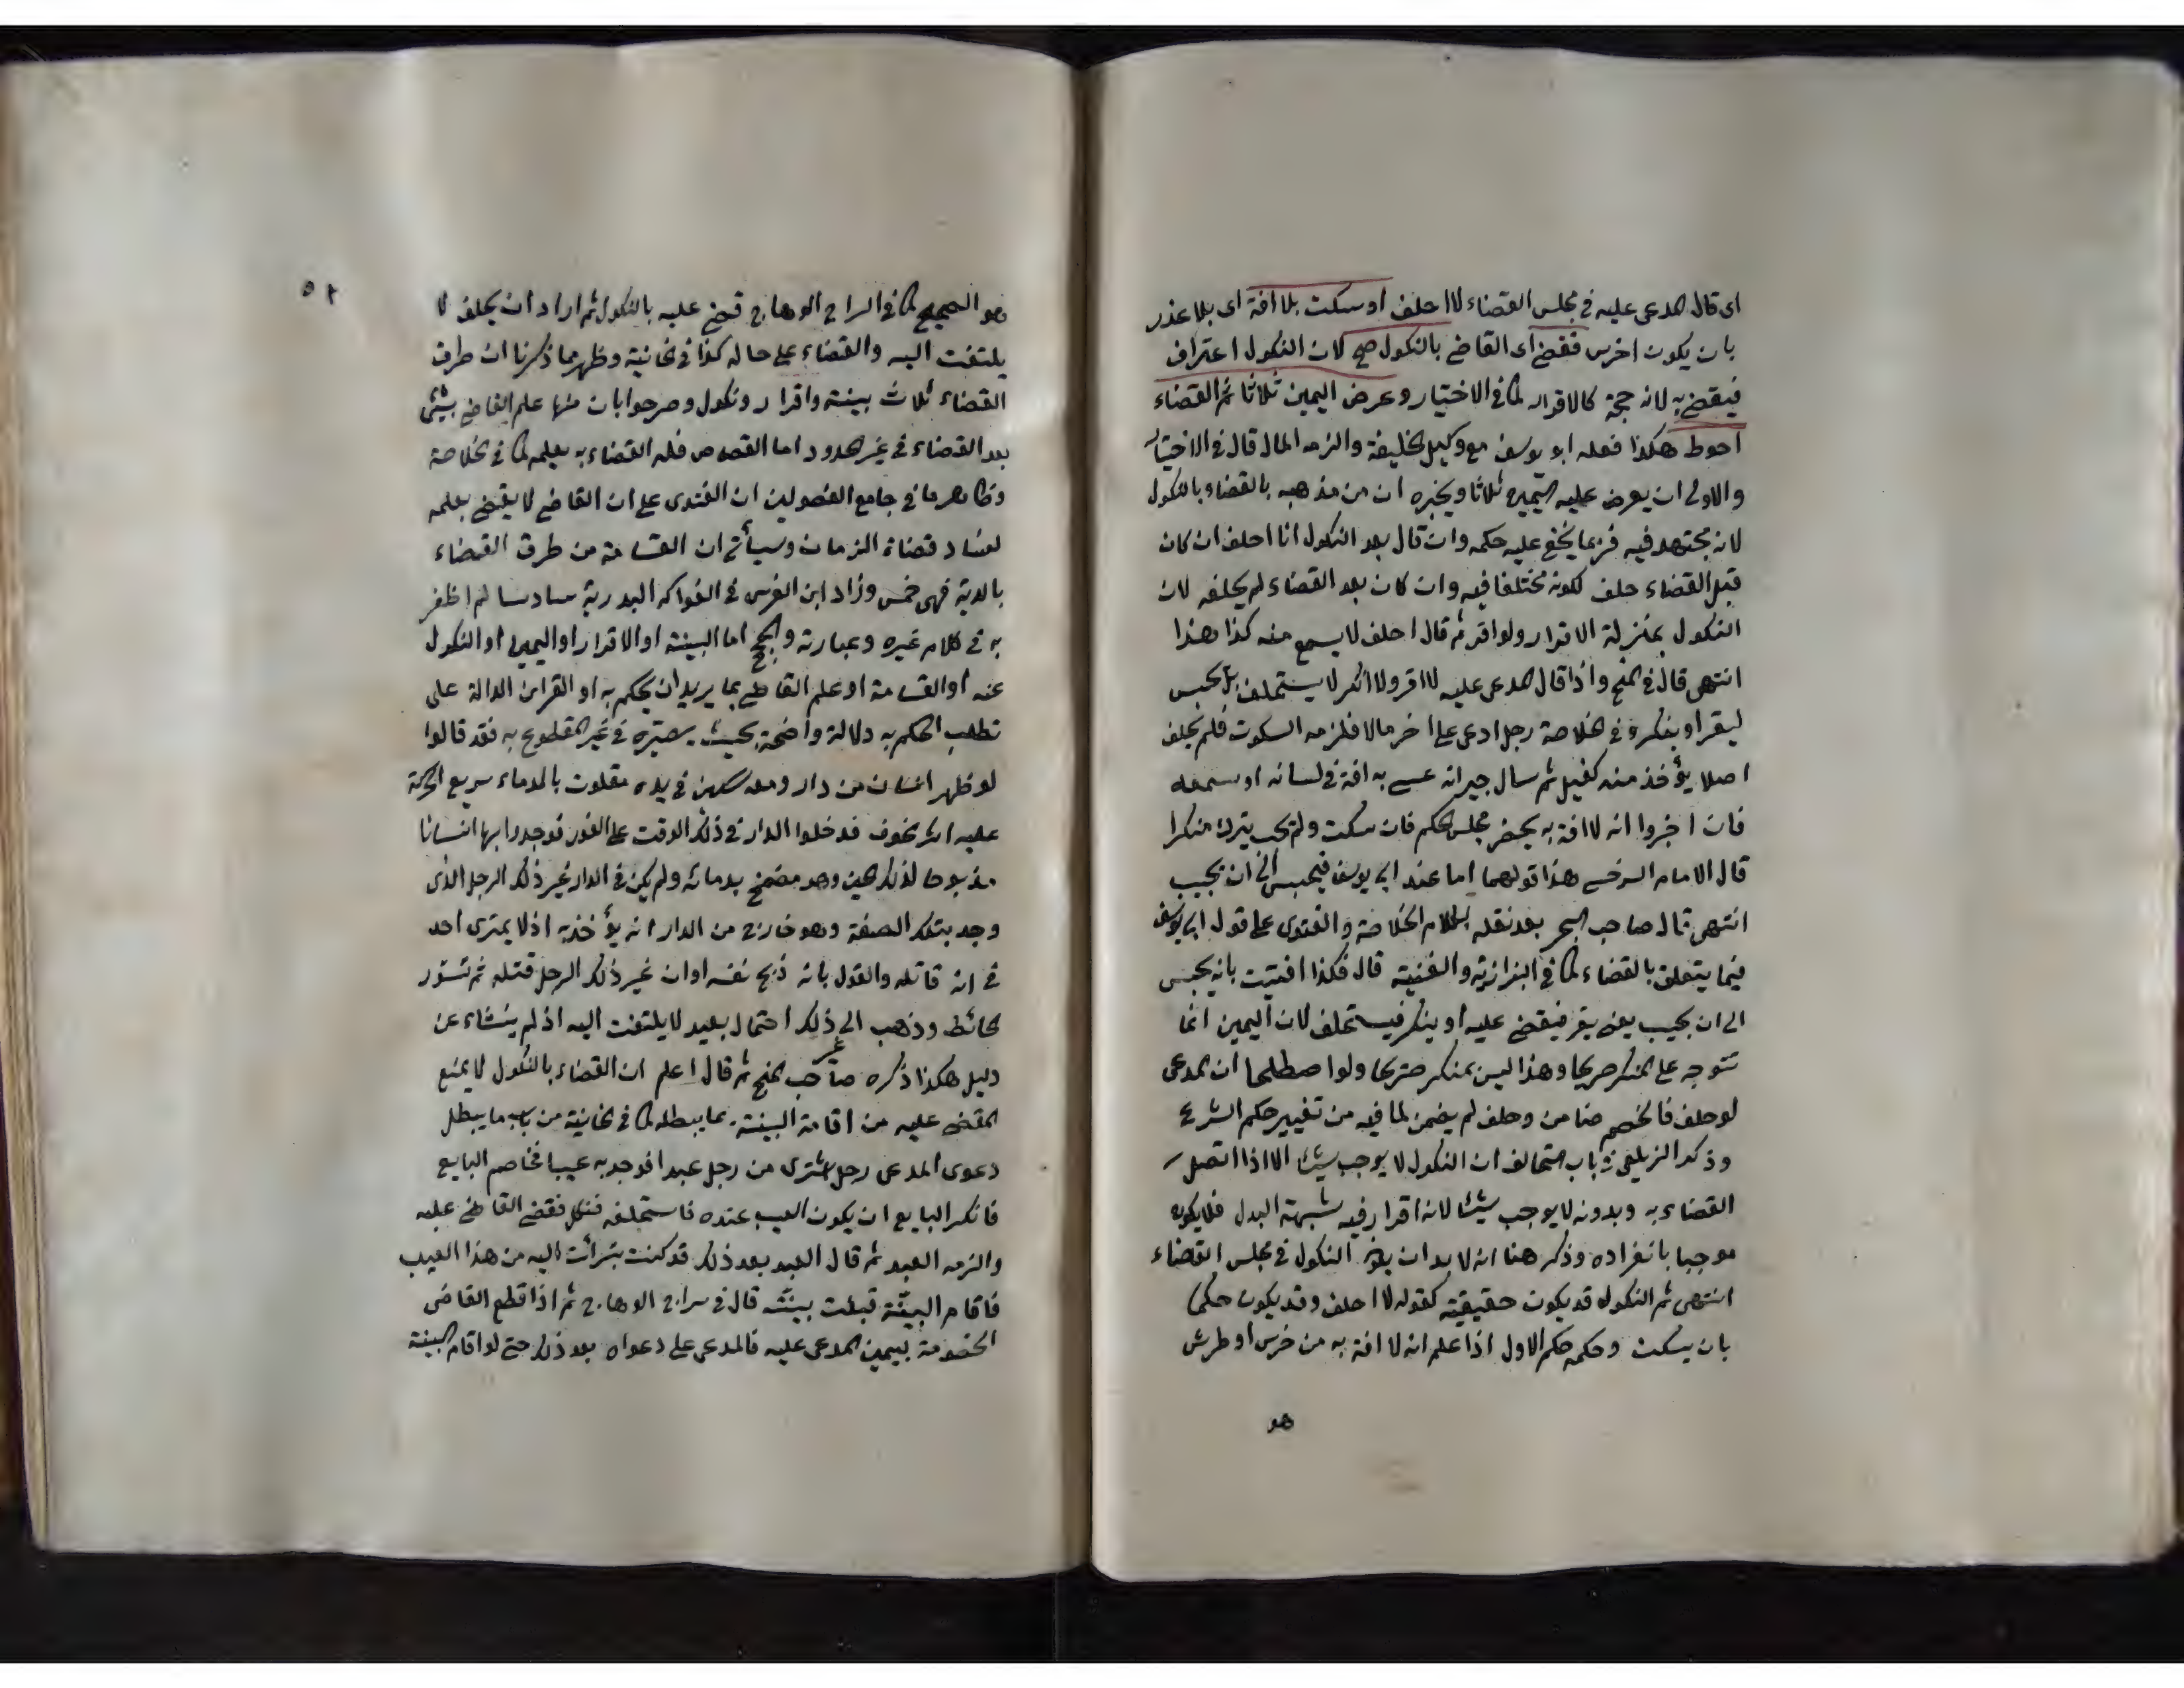 اى قال المدعى عليه فى مجلس القضاء لا احلف او سكت بلا افة اى بلا عذر
بان يكون اخرس فقضى اى القاضى بالنكول صح لان النكول اعتراف
فيقضى به لانه حجة كالاقرار كما فى الاختيار وعرض اليمين ثلاثا ثم القضاء
احوط هكذا فعله ابو يوسف مع وكيل الخليفة والزمه المال قال فى الاختيار
والاولى ان يعرض عليه اليمين ثلاثا ويخبره ان من مذهبه بالقضاء بالنكول
لانه مجتهد فيه فربما يخفى عليه حكمه وان قال بعد النكول انا احلف ان كان
قبل القضاء حلف لكونه مختلفا فيه وان كان بعد القضاء لم يحلفه لان
النكول بمنزلة الاقرار ولو اقر ثم قال احلف لا يسمع منه كذا هذا
انتهى قال فى المنح واذا قال المدعى عليه لا اقر ولا انكر لا يستحلف بل يحبس
ليقر او ينكر وفى الخلاصة رجل ادعى على اخر مالا فلزمه السكوت فلم يحلف
اصلا يؤخذ منه كفيل ثم سال جيرانه عسى به افة فى لسانه او سمعه
فان اخبروا انه لا افة به يحضر مجلس الحكم فان سكت ولم يجب يترك منكرا
قال الامام السرخسى هذا قولهما اما عند ابى يوسف فيحبس الى ان يجيب
انتهى قال صاحب البحر بعد نقله لكلام الخلاصة والفتوى على قول ابى يوسف
فيما يتعلق بالقضاء كما فى البزازية والقنية قال فلذا افتيت بانه يحبس
الى ان يجيب يعنى يقر فيقضى عليه او ينكر فيستحلف لان اليمين انما
تتوجه على المنكر صريحا وهذا ليس بمنكر صريحا ولو اصطلحا ان المدعى
لو حلف فالخصم ضامن وحلف لم يضمن لما فيه من تغيير حكم الشرع
وذكر الزيلعى فى باب التحالف ان النكول لا يوجب شيئا الا اذا اتصل
القضاء به وبدونه لا يوجب شيئا لانه اقرار فيه شبهة البدل فلا يكون
موجبا بانفراده وذكر هنا انه لا بد ان يكون النكول فى مجلس القضاء
انتهى ثم النكول قد يكون حقيقة كقوله لا احلف وقد يكون حكما
بان يسكت وحكمه حكم الاول اذا علم انه لا افة به من خرس او طرش
هو
٥٢
هو الصحيح كما فى السراج الوهاج قضى عليه بالنكول ثم اراد ان يحلف لا
يلتفت اليه والقضاء على حاله كذا فى الخانية وظهر مما ذكرنا ان طرق
القضاء ثلاث بينة واقرار ونكول وصرحوا بان منها علم القاضى بشئ
بعد القضاء فى غير الحدود اما القصاص فله القضاء به بعلمه كما فى الخلاصة
وظاهر ما فى جامع الفصولين ان الفتوى على ان القاضى لا يقضى بعلمه
لفساد قضاة الزمان وسيأتى ان القسامة من طرق القضاء
بالدية فهى خمس وزاد ابن الغرس فى الفواكه البدرية سادسا لم اظفر
به فى كلام غيره وعبارته والحجج اما البينة او الاقرار او اليمين او النكول
عنه او القسامة او علم القاضى بما يريد ان يحكم به او القراين الدالة على
تطلب الحكم به دلالة واضحة بحيث يصيره فى غير المقطوع به فقد قالوا
لو ظهر انسان من دار ومعه سكين فى يده متلوث بالدماء سريع الحركة
عليه اثر خوف فدخلوا الدار فى ذلك الوقت على الفور فوجدوا بها انسانا
مذبوحا لذلك الحين وهو مضمخ بدمائه ولم يكن فى الدار غير ذلك الرجل الذى
وجد بتلك الصفة وهو خارج من الدار انه يؤخذ به اذ لا يمترى احد
فى انه قاتله والقول بانه ذبح نفسه او ان غير ذلك الرجل قتله ثم تسور
الحائط وذهب الى غير ذلك احتمال بعيد لا يلتفت اليه اذ لم ينشاء عن
دليل هكذا ذكره صاحب المنح ثم قال اعلم ان القضاء بالنكول لا يمنع
المقضى عليه من اقامة البينة بما يبطله كما فى الخانية من باب ما يبطل
دعوى المدعى رجل اشترى من رجل عبدا فوجد به عيبا فخاصم البايع
فانكر البايع ان يكون العيب عنده فاستحلفه فنكل فقضى القاضى عليه
والزمه العبد ثم قال العبد بعد ذلك قد كنت تبرأت اليه من هذا العيب
فاقام البينة قبلت بينته قال فى سراج الوهاج ثم اذا قطع القاضى
الخصومة بيمين المدعى عليه فالمدعى على دعواه بعد ذلك حتى لو اقام البينة